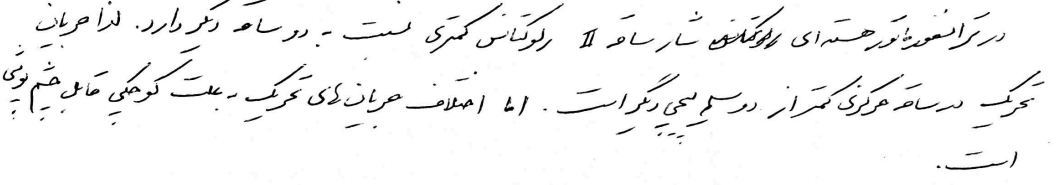 در ترانسفورماتور هسته ای شار ساقه II رلوکتانس کمتری نسبت به دو ساقه دیگر دارد. لذا جریان
تحریک در ساقه مرکزی کمتر از دو سیم پیچی دیگر است. اما اختلاف جریان های تحریک به علت کوچکی قابل چشم پوشی
است.